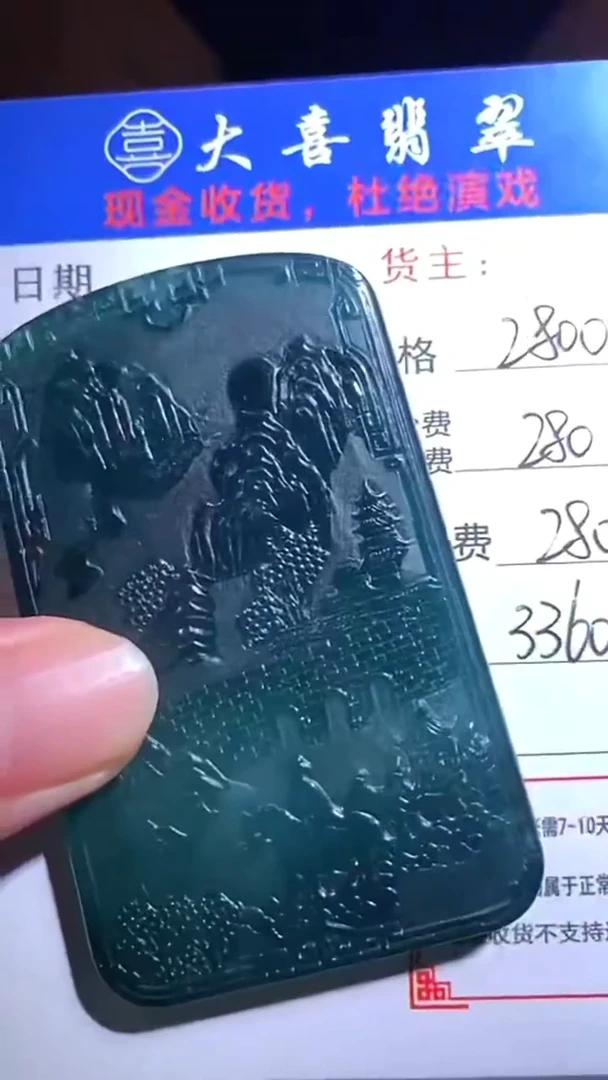 喜 大喜翡翠
现金收货，杜绝演戏
日期
货主：
格 2800
费
费 280
费 280
3360
需7-10天
属于正常
收货不支持